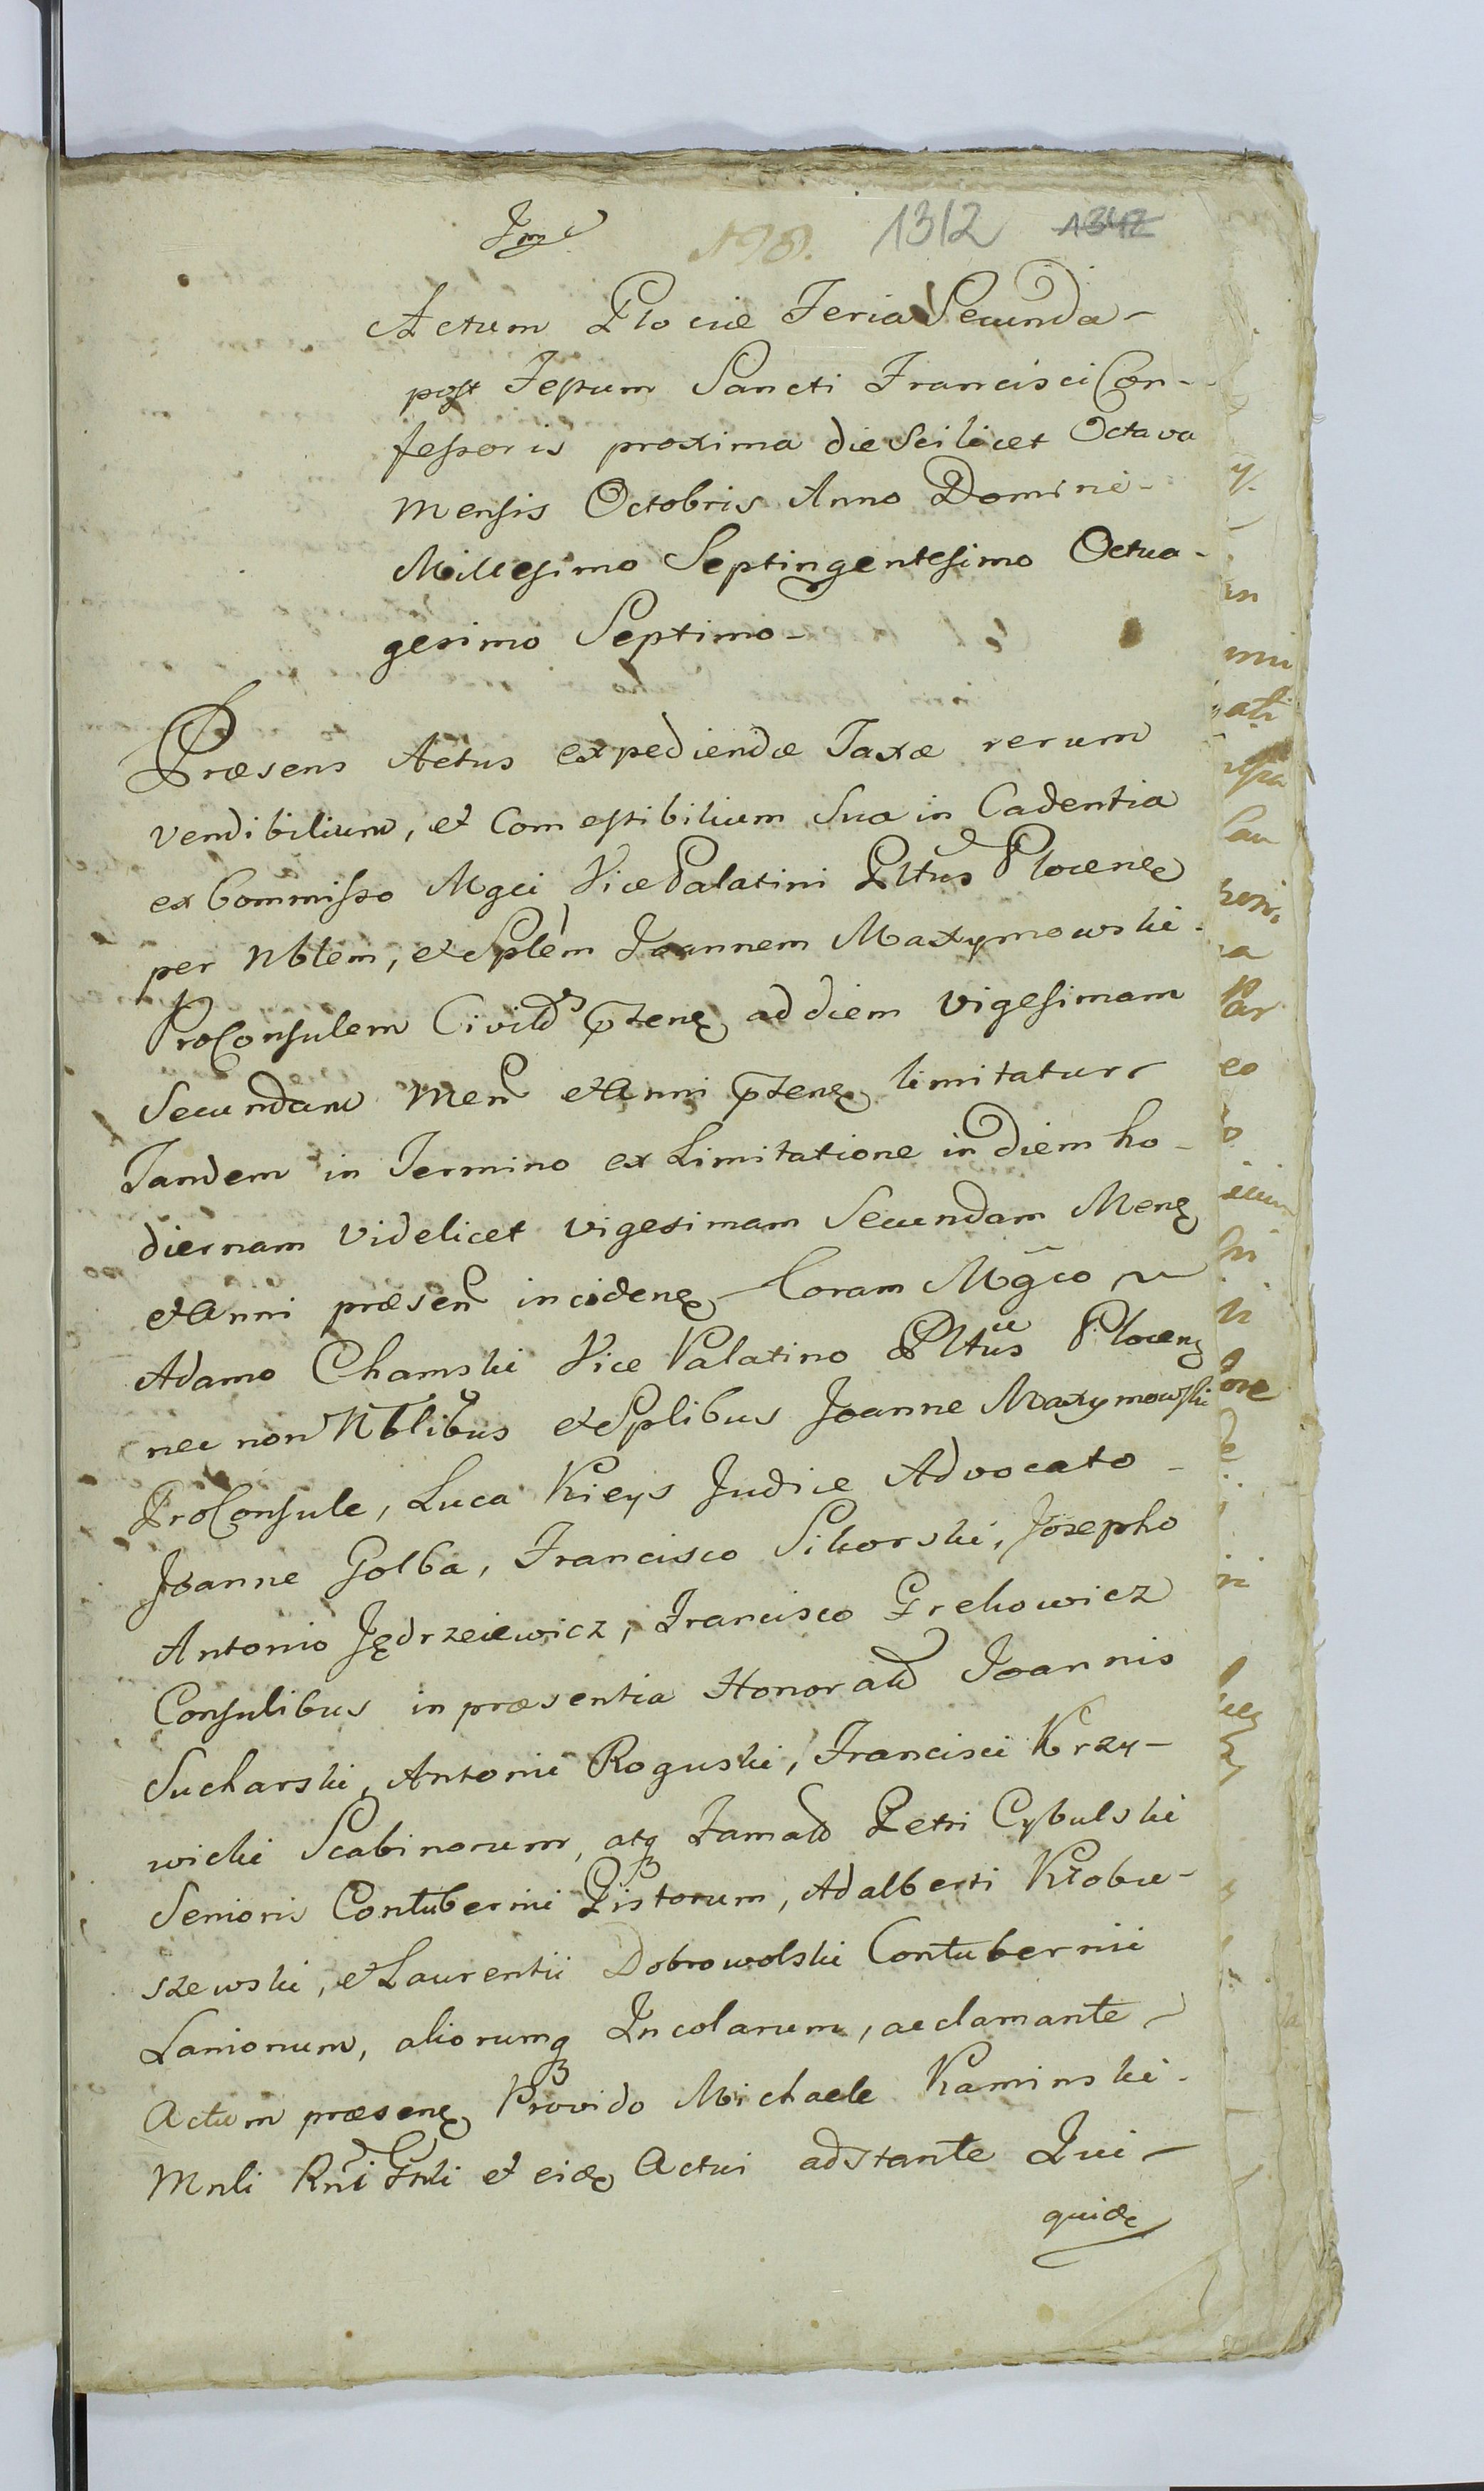 N98. 1312 1342
Actum Plociæ Feria Secunda
post Festum Sancti Francisci Con-
fessoris proxima die Scilicet Octava
Mensis Octobris Anno Domini
Millesimo Septingentesimo Octua-
gesimo Septimo
Præsens Actus expediendæ Taxæ rerum
vendibilium, et Comestibilium Sua in Cadentia
ex Commisso Mgci Vice Palatini Pltus Plocens
per Nblem, et Splem Joannem Maxymowski
ProConsulem Civitts pntens ad diem vigesimam
Secundam Mens et Anni pntens limitatur
Tandem in Termino ex Limitatione in Diem ho-
diernam videlicet vigesimam Secundam Mens
et Anni præsen incidens Coram Mgco
Adamo Chamski Vice Palatino Pltus Plocens
nec non Nblibus et Splibus Joanne Maxymowski
ProConsule, Luca Kieys Judice Advocato
Joanne Golba, Francisco Sikorski, Josepho
Antonio Jędrzeiewicz, Francisco Grekowicz
Consulibus in præsentia Honorat Joannis
Sucharski, Antonii Roguski, Francisci Krzy-
wicki Scabinorum, atq Famat Petri Cybulski
Senioris Contubernii Pistorum, Adalberti Kłobu-
szewski, et Laurentii Dobrowolski Contubernii
Lanionum, aliorumq Incolarum, acclamante
Actum præsens Provido Michaele Kaminski
Mnli Rni Gnli et eidę Actui adstante Qui
quidę